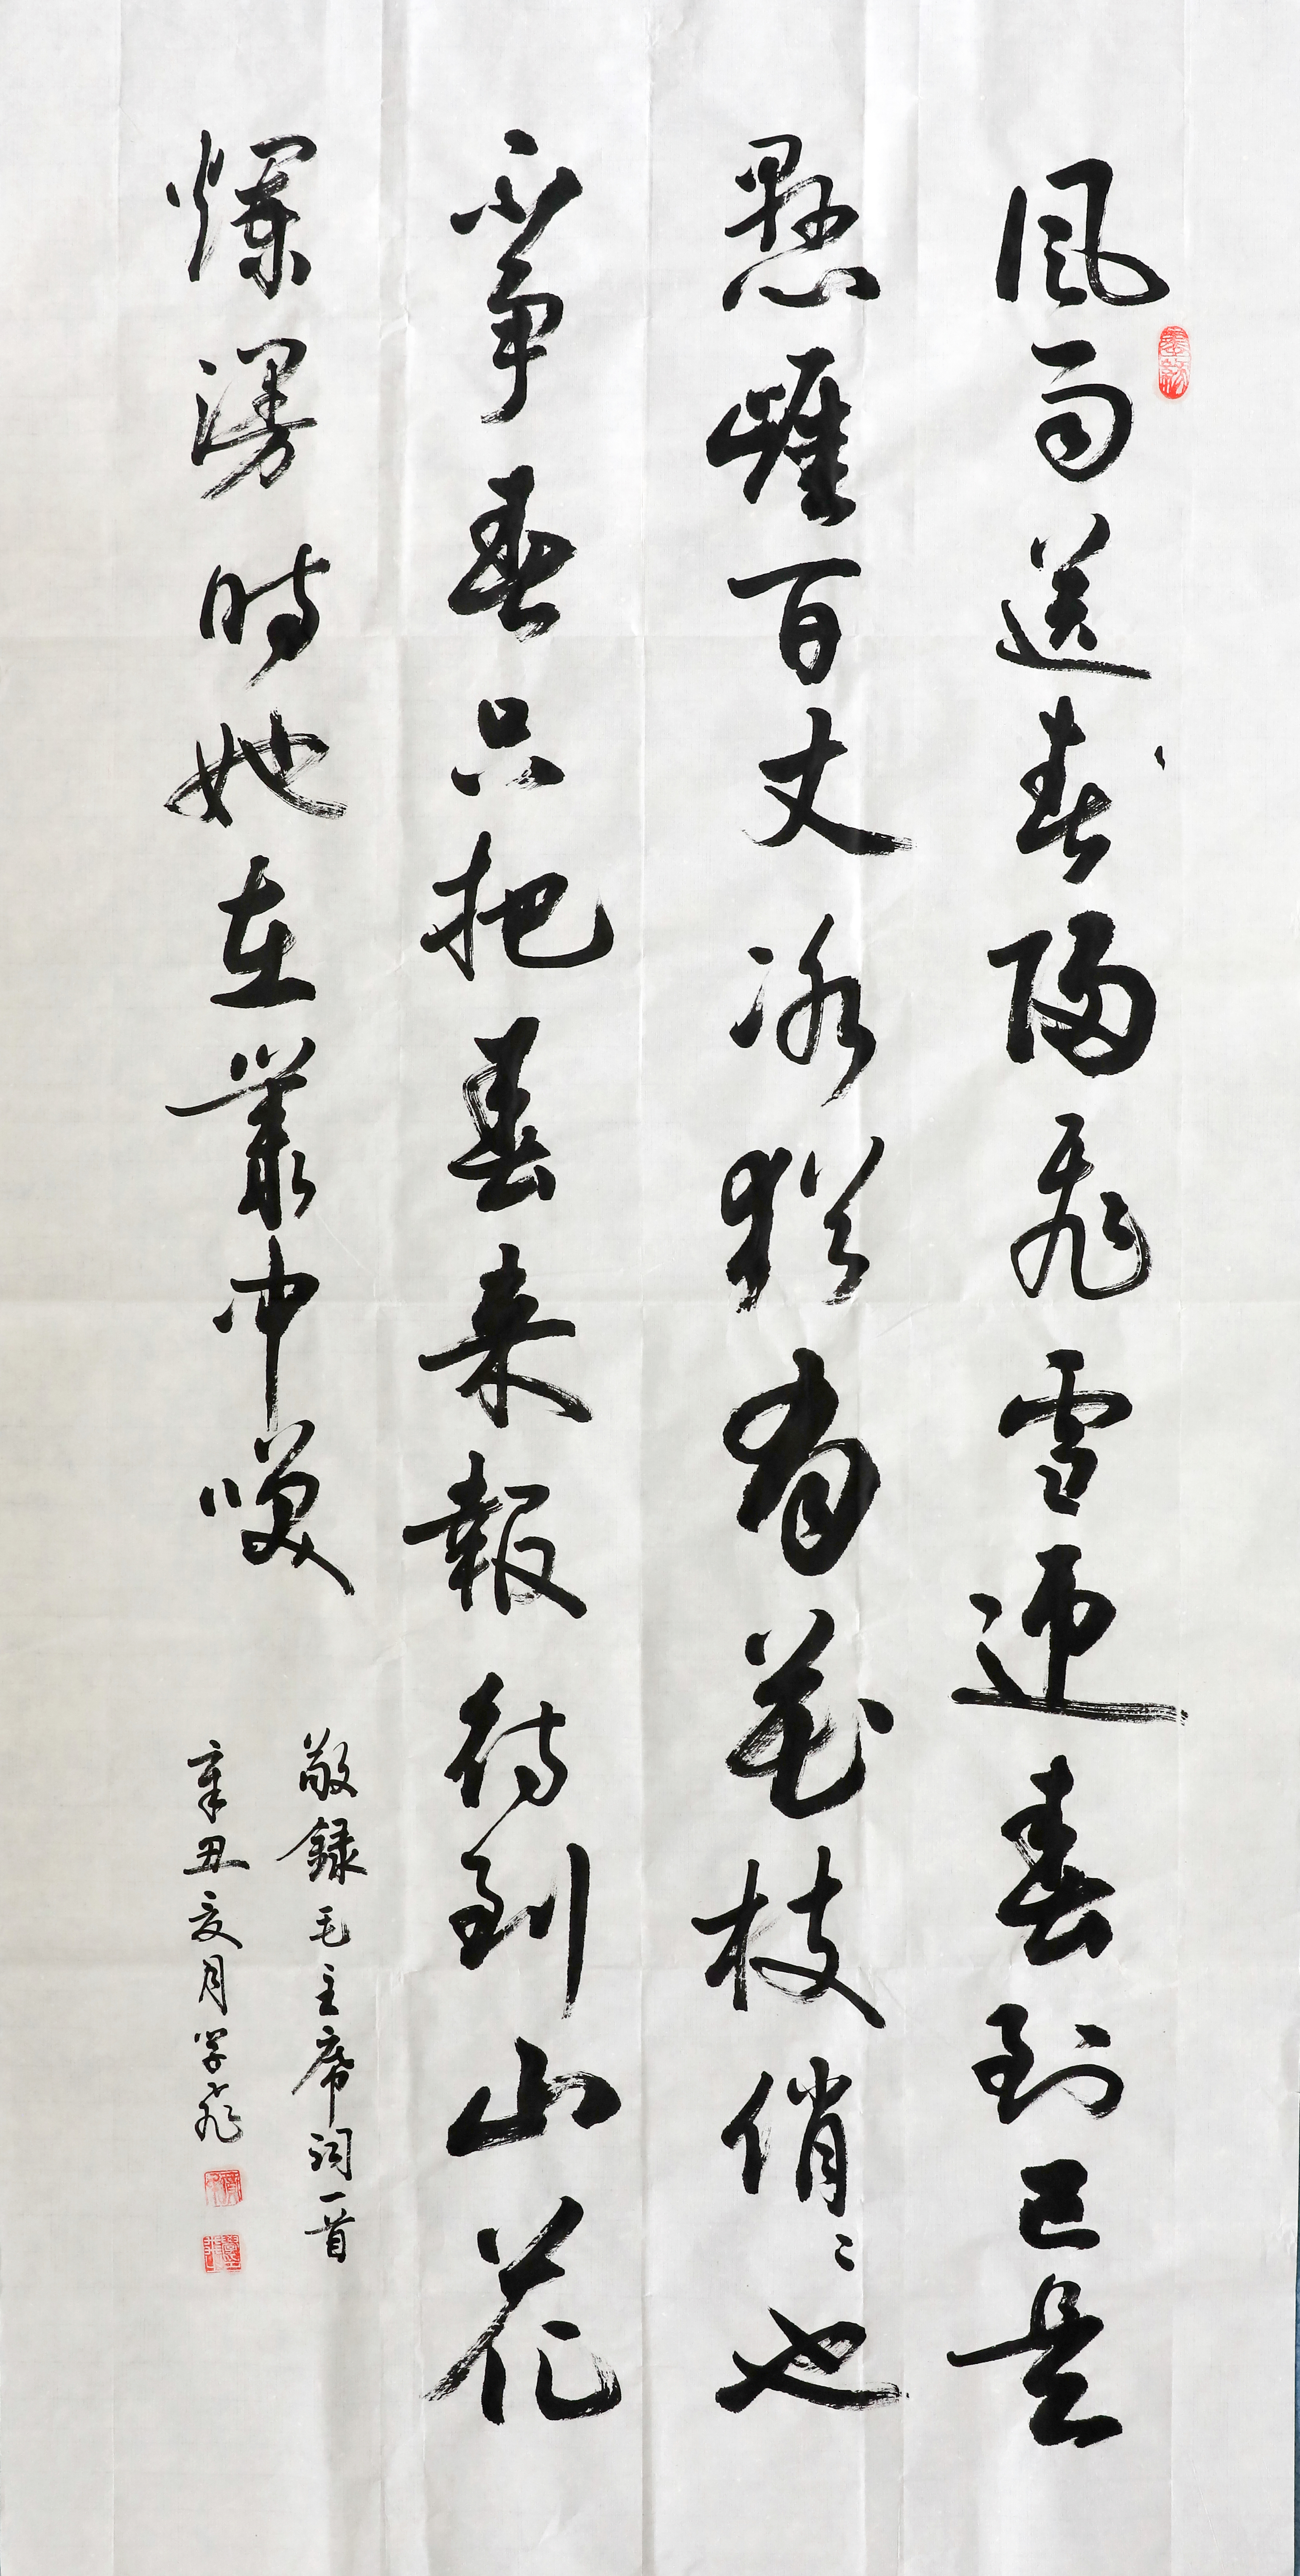 風雨送春歸飛雪迎春到已是
懸崖百丈冰猶有花枝俏〻也
不争春只把春来報待到山花
爛漫時她在叢中咲
敬録毛主席詞一首
辛丑夏月学飛